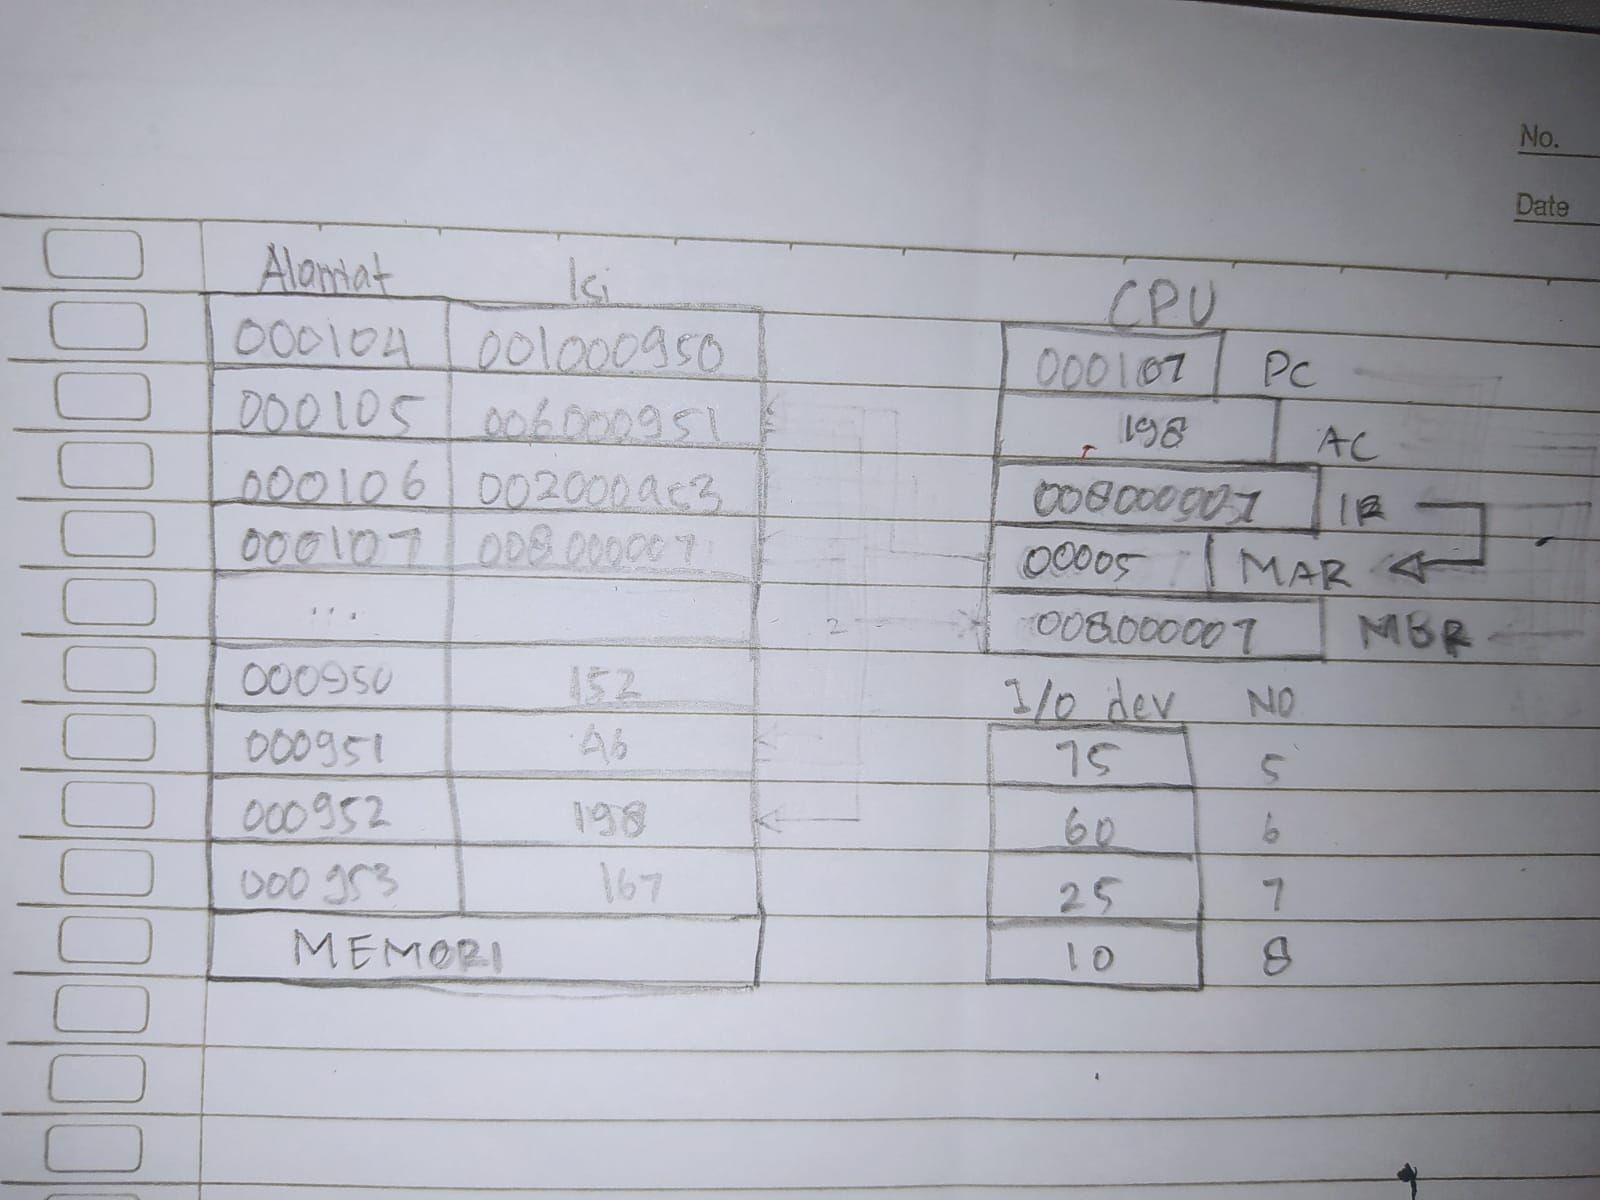 No.
Date
Alamat Isi
000104 001000950
000105 006000951
000106 002000953
000107 008000007
...
000950 152
000951 46
000952 198
000953 167
MEMORI
CPU
000107 PC
198 AC
008000007 IR
00005 MAR
008000007 MBR
2
I/O dev NO
75 5
60 6
25 7
10 8